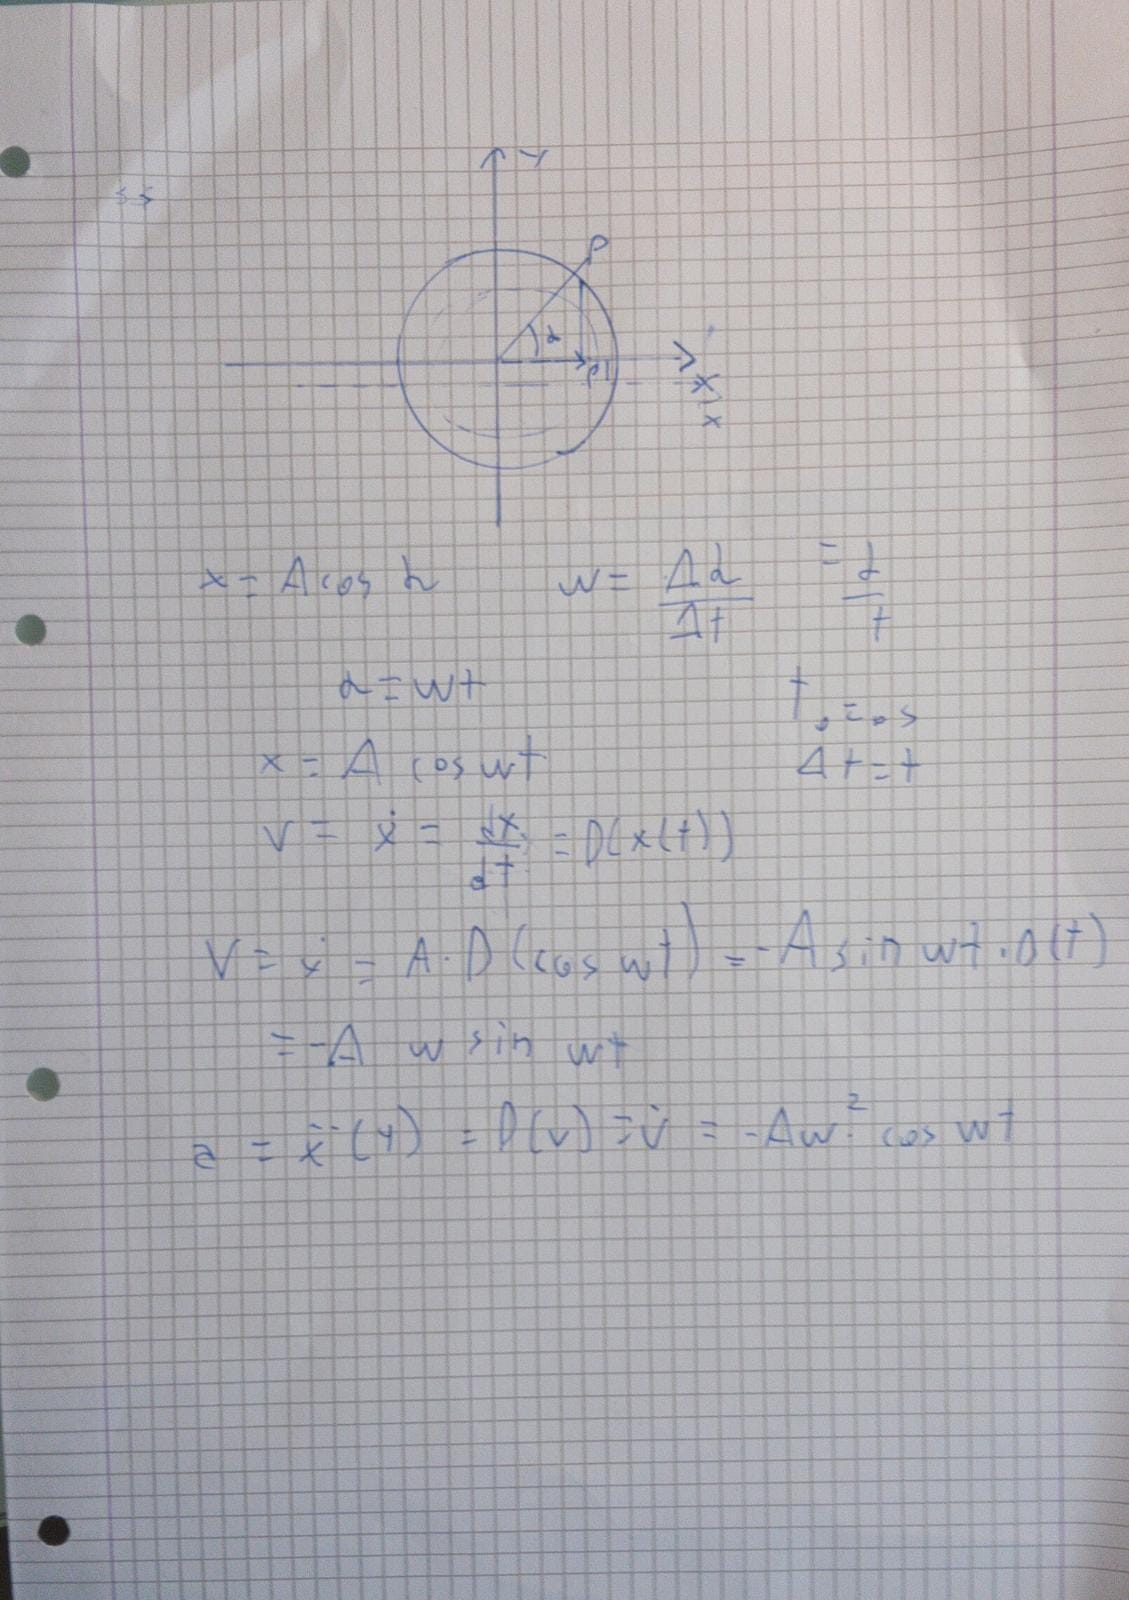 y
P
α
P'
x
x
x = A cos α    w = Δα/Δt = α/t
α = wt
t₀ = 0 s
x = A cos wt    Δt = t
v = ẋ = dx/dt = D(x(t))
V = ẋ = A · D(cos wt) = -A sin wt · D(t)
= -A w sin wt
a = ẍ(t) = D(v) = v̇ = -Aw² cos wt